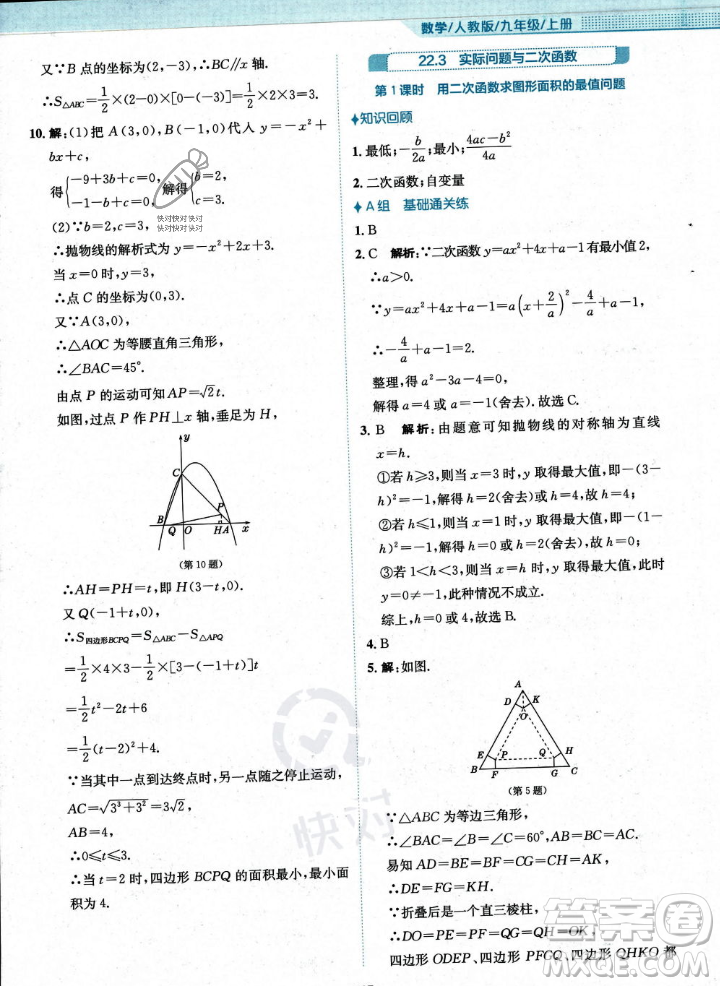 数学/人教版/九年级/上册
又∵B点的坐标为(2,-3),∴BC∥x轴.
∴S△ABC=1/2×(2-0)×[0-(-3)]=3.
10.解:(1)把A(3,0),B(-1,0)代入y=-x²+
bx+c,
得{-9+3b+c=0, -1-b+c=0, 解得{b=2, c=3.
快对快对快对
快对快对快对
(2)∵b=2,c=3,
∴抛物线的解析式为y=-x²+2x+3.
当x=0时,y=3,
∴点C的坐标为(0,3).
又∵A(3,0),
∴△AOC为等腰直角三角形,
∴∠BAC=45°.
由点P的运动可知AP=√2t.
如图,过点P作PH⊥x轴,垂足为H,
y
C
P
B Q O HA x
(第10题)
∴AH=PH=t,即H(3-t,0).
又Q(-1+t,0)
∴S四边形BCPQ=S△ABC-S△APQ
=1/2×4×3-1/2×[3-(-1+t)]t
=1/2t²-2t+6
=1/2(t-2)²+4.
∵当其中一点到达终点时,另一点随之停止运动,
AC=√(3²+3²)=3√2,
AB=4,
∴0≤t≤3.
∴当t=2时,四边形BCPQ的面积最小,最小面
积为4.
22.3 实际问题与二次函数
第1课时 用二次函数求图形面积的最值问题
知识回顾
1.最低;-b/2a;最小;(4ac-b²)/4a
2.二次函数;自变量
A组 基础通关练
1.B
2.C 解析:∵二次函数y=ax²+4x+a-1有最小值2,
∴a>0.
∵y=ax²+4x+a-1=a(x+2/a)²-4/a+a-1,
∴-4/a+a-1=2.
整理,得a²-3a-4=0,
解得a=4或a=-1(舍去).故选C.
3.B 解析:由题意可知抛物线的对称轴为直线
x=h.
①若h≥3,则当x=3时,y取得最大值,即-(3-
h)²=-1,解得h=2(舍去)或h=4;
②若h≤1,则当x=1时,y取得最大值,即-(1-
h)²=-1,解得h=2(舍去)或h=0;
③若1<h<3,则当x=h时,y取得最大值,此时
y=0≠-1,此种情况不成立.
综上,h=0或h=4,故选B.
4.B
5.解:如图.
A
D K
O
E P Q H
B F G C
(第5题)
∵△ABC为等边三角形,
∴∠A=∠B=∠C=60°,AB=BC=AC.
易知AD=AK=BE=BF=CG=CH,
∴DE=FG=KH.
∵折叠后是一个直三棱柱,
∴DO=PE=PF=QG=QH=OK,
四边形ODEP、四边形PFGQ、四边形QHKO都
快对
答案圈
MXQE.COM